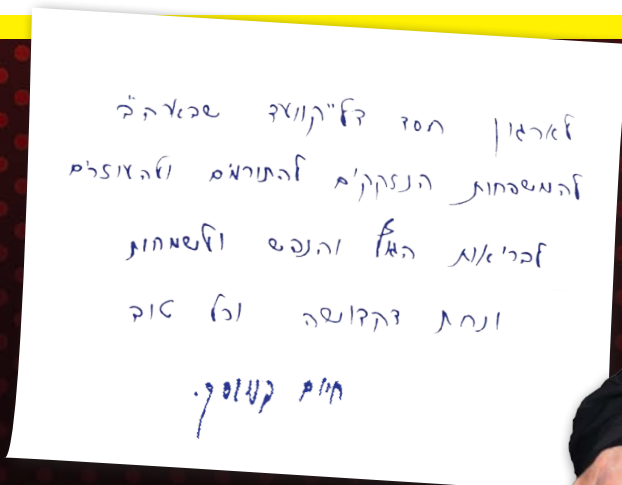 לארגון חסד דל"קוועד שבארה"ב
להמשפחות הנזקקים להתורמים ולהעוזרים
לבריאות הגוף והנפש ולשמחות
ונחת דקדושה וכל טוב
חיים קניבסקי.